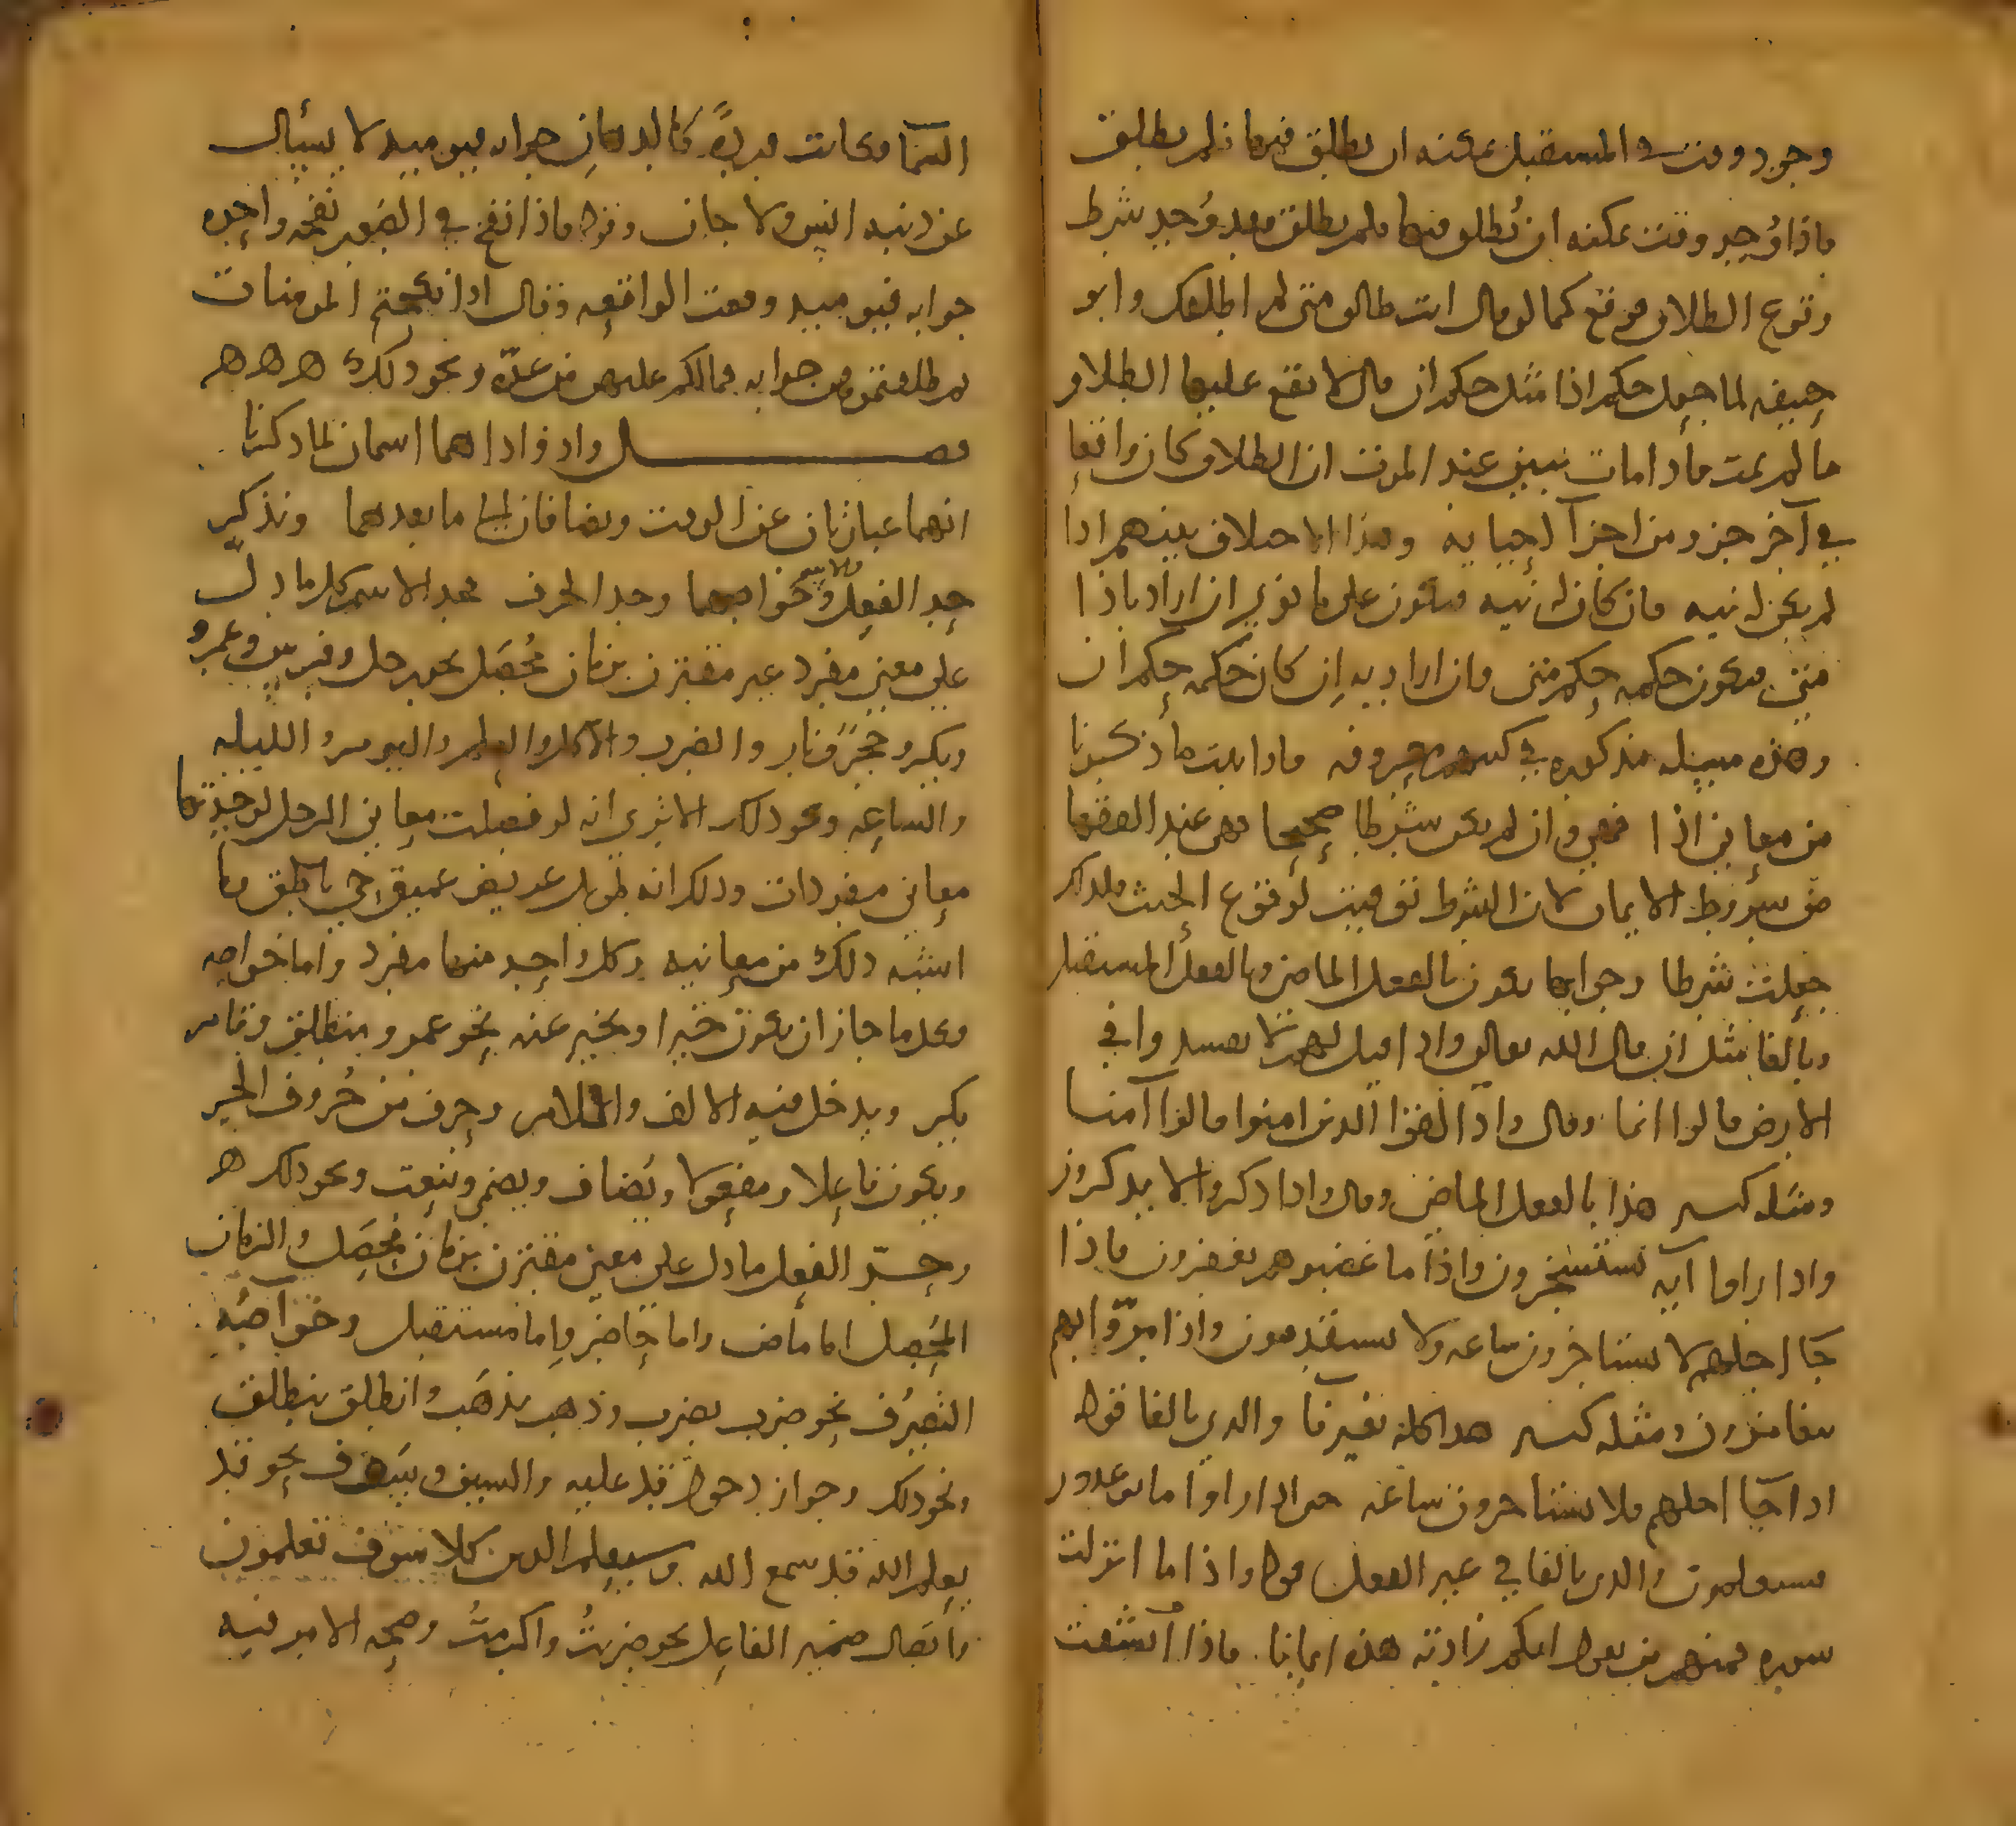 وجود وقت في المستقبل يمكنه ان يطلق فيها فلم يطلق
فاذا وُجد وقت يمكنه ان يُطلق فيها فلم يطلق فقد وُجد شرط
وقوع الطلاق فوقع كما لو قال انت طالق متى لم اطلقك وابو
حنيفه لما جعل حكم اذا مثل حكم ان قال لا تقع عليها الطلاق
ما لم يمت فاذا مات تبين عند الموت ان الطلاق كان واقعا
في آخر جزو من اجزآ حياته وهذا الاختلاف بينهم اذا
لم يكن له نيه فان كان له نيه فيكون على ما نوى ان اراد باذا
متى فيكون حكمه حكم متى وان اراد به ان كان حكمه حكم ان
وهذه مسئله مذكوره في كتب معروفه فاذا ثبت ما ذكرنا
من معاني اذا فهي وان لم يكن شرطا صحيحا فهي عند الفقها
من شروط الايمان لان الشرط توقيت لوقوع الحنث فلذلك
جعلت شرطا وجوابها يكون بالفعل الماضي وبالفعل المستقبل
وبالفا مثل ان قال الله تعالى واذا قيل لهم لا تفسدوا في
الارض قالوا انما وقال واذا لقوا الذين امنوا قالوا آمنا
ومثله كثير هذا بالفعل الماضي وقال واذا ذكروا لا يذكرون
واذا راوا آيه يستسخرون واذا ما غضبوا هم يغفرون فاذا
جا اجلهم لا يستاخرون ساعه ولا يستقدمون واذا مروا بهم
يتغامزون ومثله كثير هذا كله بغير فا والذي بالفا قوله
اذا جآ اجلهم فلا يستاخرون ساعه حتى اذا راوا ما يوعدون
فسيعلمون والذي بالفا في غير الفعل قوله واذا ما انزلت
سوره فمنهم من يقول ايكم زادته هذه ايمانا فاذا انشقت
السمآ فكانت ورده كالدهان جوابه فيوميذ لا يسئال
عن ذنبه انس ولا جان وقوله فاذا نفخ في الصور نفخه واحده
جوابه فيوميذ وقعت الواقعه وقال اذا نكحتم المومنات
ثم طلقتموهن جوابه فمالكم عليهن من عده ونحو ذلك ه ه ه
فصل واذ واذا هما اسمان لما ذكرنا
انهما عبارتان عن الوقت ويضافان الى ما بعدهما ونذكر
حد الفعل والاسم وخواصهما وحد الحرف فحد الاسم كل ما دل
على معنى مفرد غير مقترن بزمان مُحصّل نحو رجل وفرس وعمرو
وبكر وحجر ونار والضرب والاكل والعلم واليوم والليله
والساعه ونحو ذلك الا ترى انه لو فصلت معاني الرجل لوجدتها
معاني مفردات وذلك انه طويل عريض عميق حي ناطق وما
اشبه ذلك من معانيه وكل واحد منها مفرد واما خواصه
فكل ما جاز ان يكون خبرا او يخبر عنه نحو عمرو منطلق وقام
بكر ويدخل فيه الالف واللام وحرف من حُروف الجر
ويكون فاعلا ومفعولا ويُضاف ويضمر وينعت ونحو ذلك ه
وحدّ الفعل ما دل على معنى مقترن بزمان مُحصَل والزمان
المُحصل اما ماض واما حاضر واما مستقبل وخواصه
التصرُف نحو ضرب يضرب وذهب يذهب وانطلق ينطلق
ونحو ذلك وجواز دخول قد عليه والسين وسوف نحو قد
يعلم الله قد سمع الله وسيعلم الذين كلا سوف تعلمون
واتصال ضمير الفاعل نحو ضربتُ واكرمتُ وصحه الامر فيه